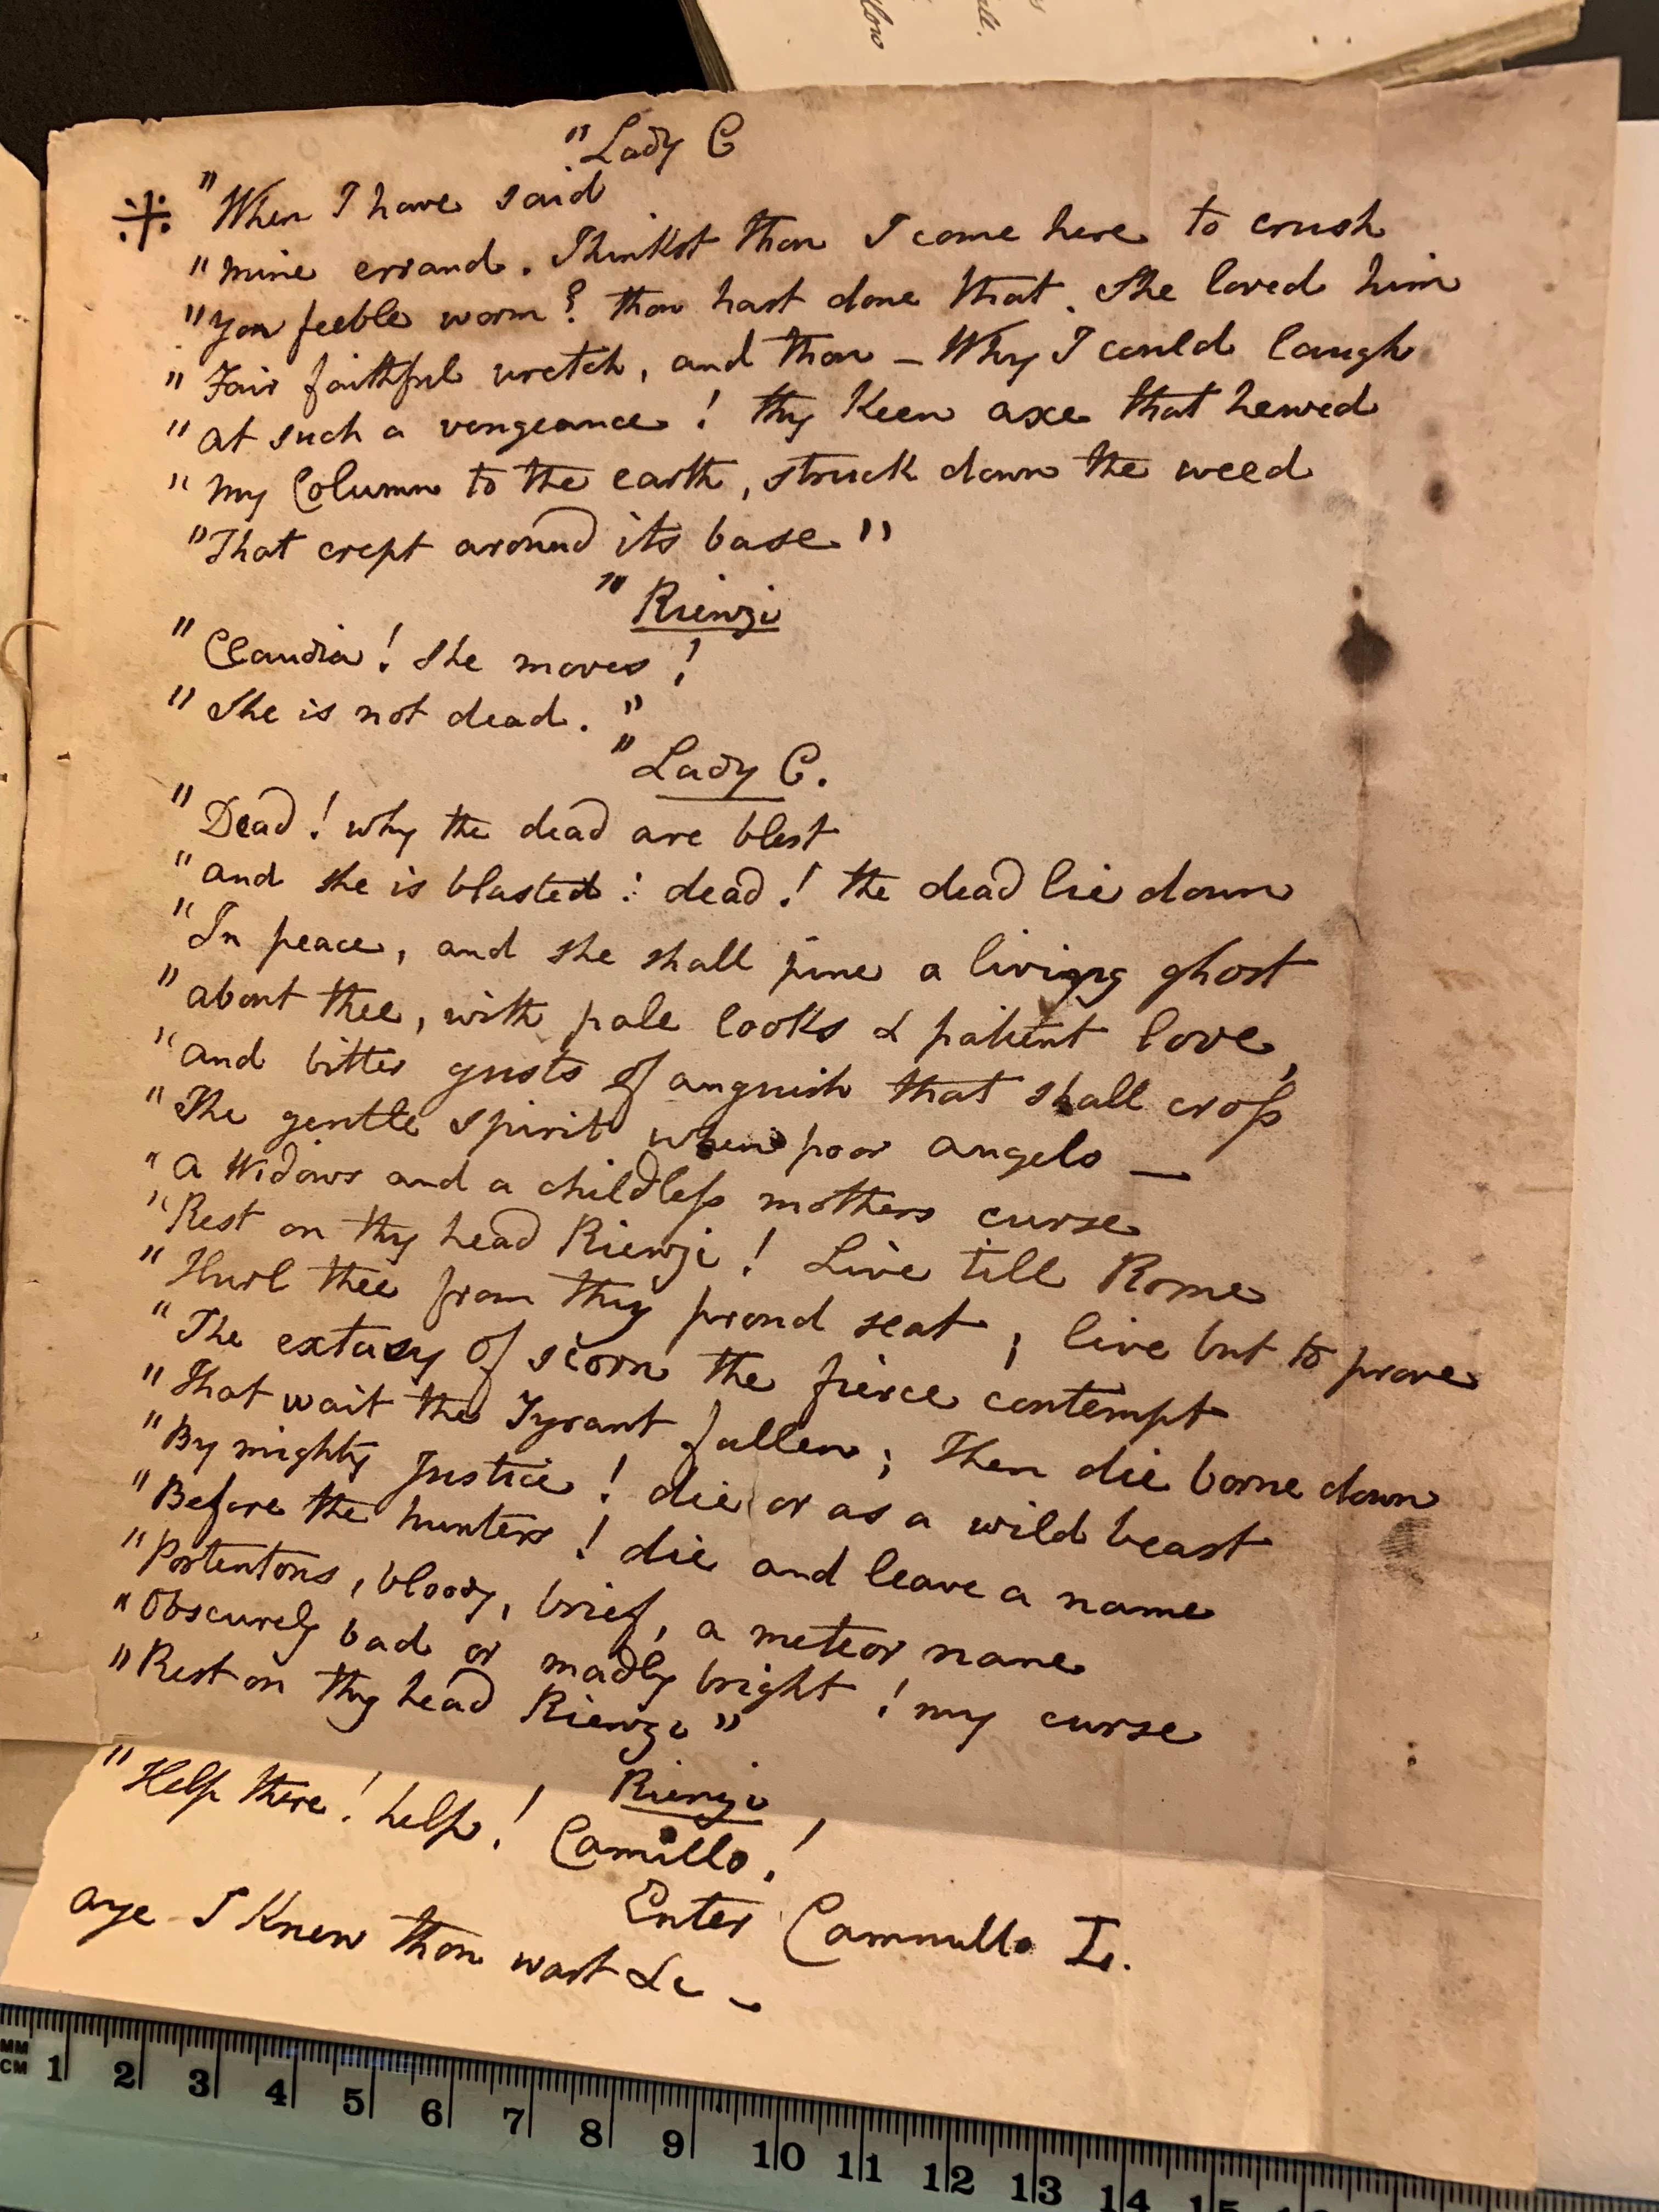 low
all.
"Lady C
"When I have said
"mine errand. Thinkst thou I come here to crush
"yon feeble worm? thou hast done that. She loved him
"Fair faithful wretch, and thou – Why I could laugh
"at such a vengeance! thy Keen axe that hewed
"my Column to the earth, struck down the weed
"That crept around its base"
"Rienzi
"Claudia! She moves!
"She is not dead."
"Lady C.
"Dead! why the dead are blest
"and she is blasted: dead! the dead lie down
"In peace, and she shall pine a living ghost
"about thee, with pale looks & patient love,
"and bitter gusts of anguish that shall cross
"The gentle spirit when poor angelo —
"a Widows and a childless mothers curse
"Rest on thy head Rienzi! Live till Rome
"Hurl thee from thy proud seat; live but to prove
"The extacy of scorn the fierce contempt
"That wait the Tyrant fallen; Then die borne down
"By mighty Justice! die or as a wild beast
"Before the hunters! die and leave a name
"Portentous, bloody, brief, a meteor name
"Obscurely bad or madly bright! my curse
"Rest on thy head Rienzi"
Rienzi
"Help there! help! Camillo!
Enter Cammillo L.
aye I Knew thou wast &c –
MM
CM 1 2 3 4 5 6 7 8 9 10 11 12 13 14 15